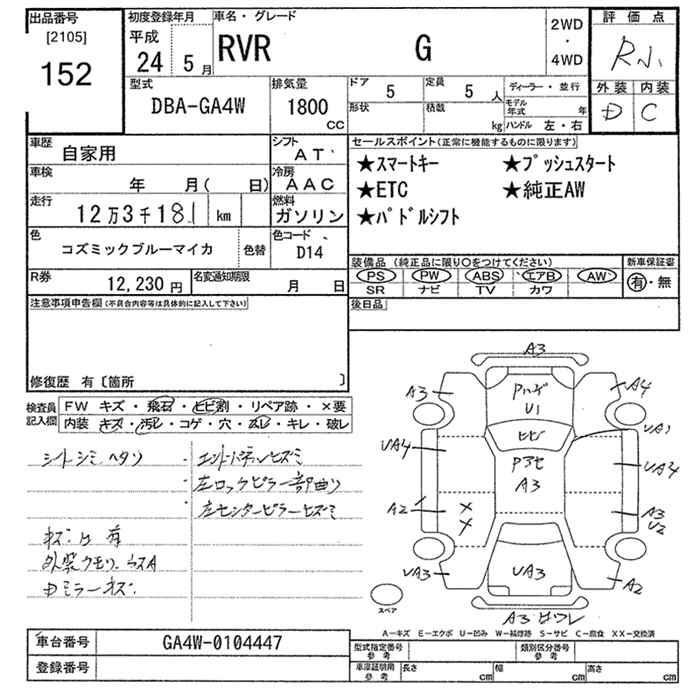 出品番号 初度登録年月 車名・グレード 評価点
[2105] 平成 2WD
152 24 5月 RVR G ・
4WD
外装 内装
D C
型式 排気量 ドア 5 定員 5人 ディーラー・並行
DBA-GA4W 1800 形状 積載 モデル年式 年
CC kg ハンドル 左・右
車歴 自家用 シフト AT セールスポイント(正常に機能するものに限ります)
車検 年 月( 日) 冷房 AAC ★スマートキー ★プッシュスタート
走行 12万3千181km 燃料 ガソリン ★ETC ★純正AW
★パドルシフト
色 コズミックブルーマイカ 色替 色コード D14
装備品(純正品に限り〇をつけてください) 新車保証書
R券 12,230円 名変通知期限 月 日 PS PW ABS エアB AW 有・無
SR ナビ TV カワ
注意事項申告欄(不具合内容等は具体的に記入して下さい) 後日品
修復歴 有〔箇所 〕
検査員記入欄 FW キズ・飛石・ヒビ割・リペア跡・×要
内装 キズ・汚レ・コゲ・穴・スレ・キレ・破レ
シートシミ、ヘタリ ・エンドパネルヒズミ
・左ロックピラー部曲り
・左センターピラーヒズミ
キズ凹有
外装クモリ、ウスA
ミラーキズ
A3
A3 A4
U1
ヒビ UA1
UA4 UA4
A3
A2 × A3
× U2
UA3 UA3 A2
スペア
A3
A-キズ E-エクボ U-凹み W-補修跡 S-サビ C-腐食 XX-交換済
車台番号 GA4W-0104447 型式指定番号 参考 類別区分番号 参考
登録番号 車庫証明用 参考 長さ cm 幅 cm 高さ cm